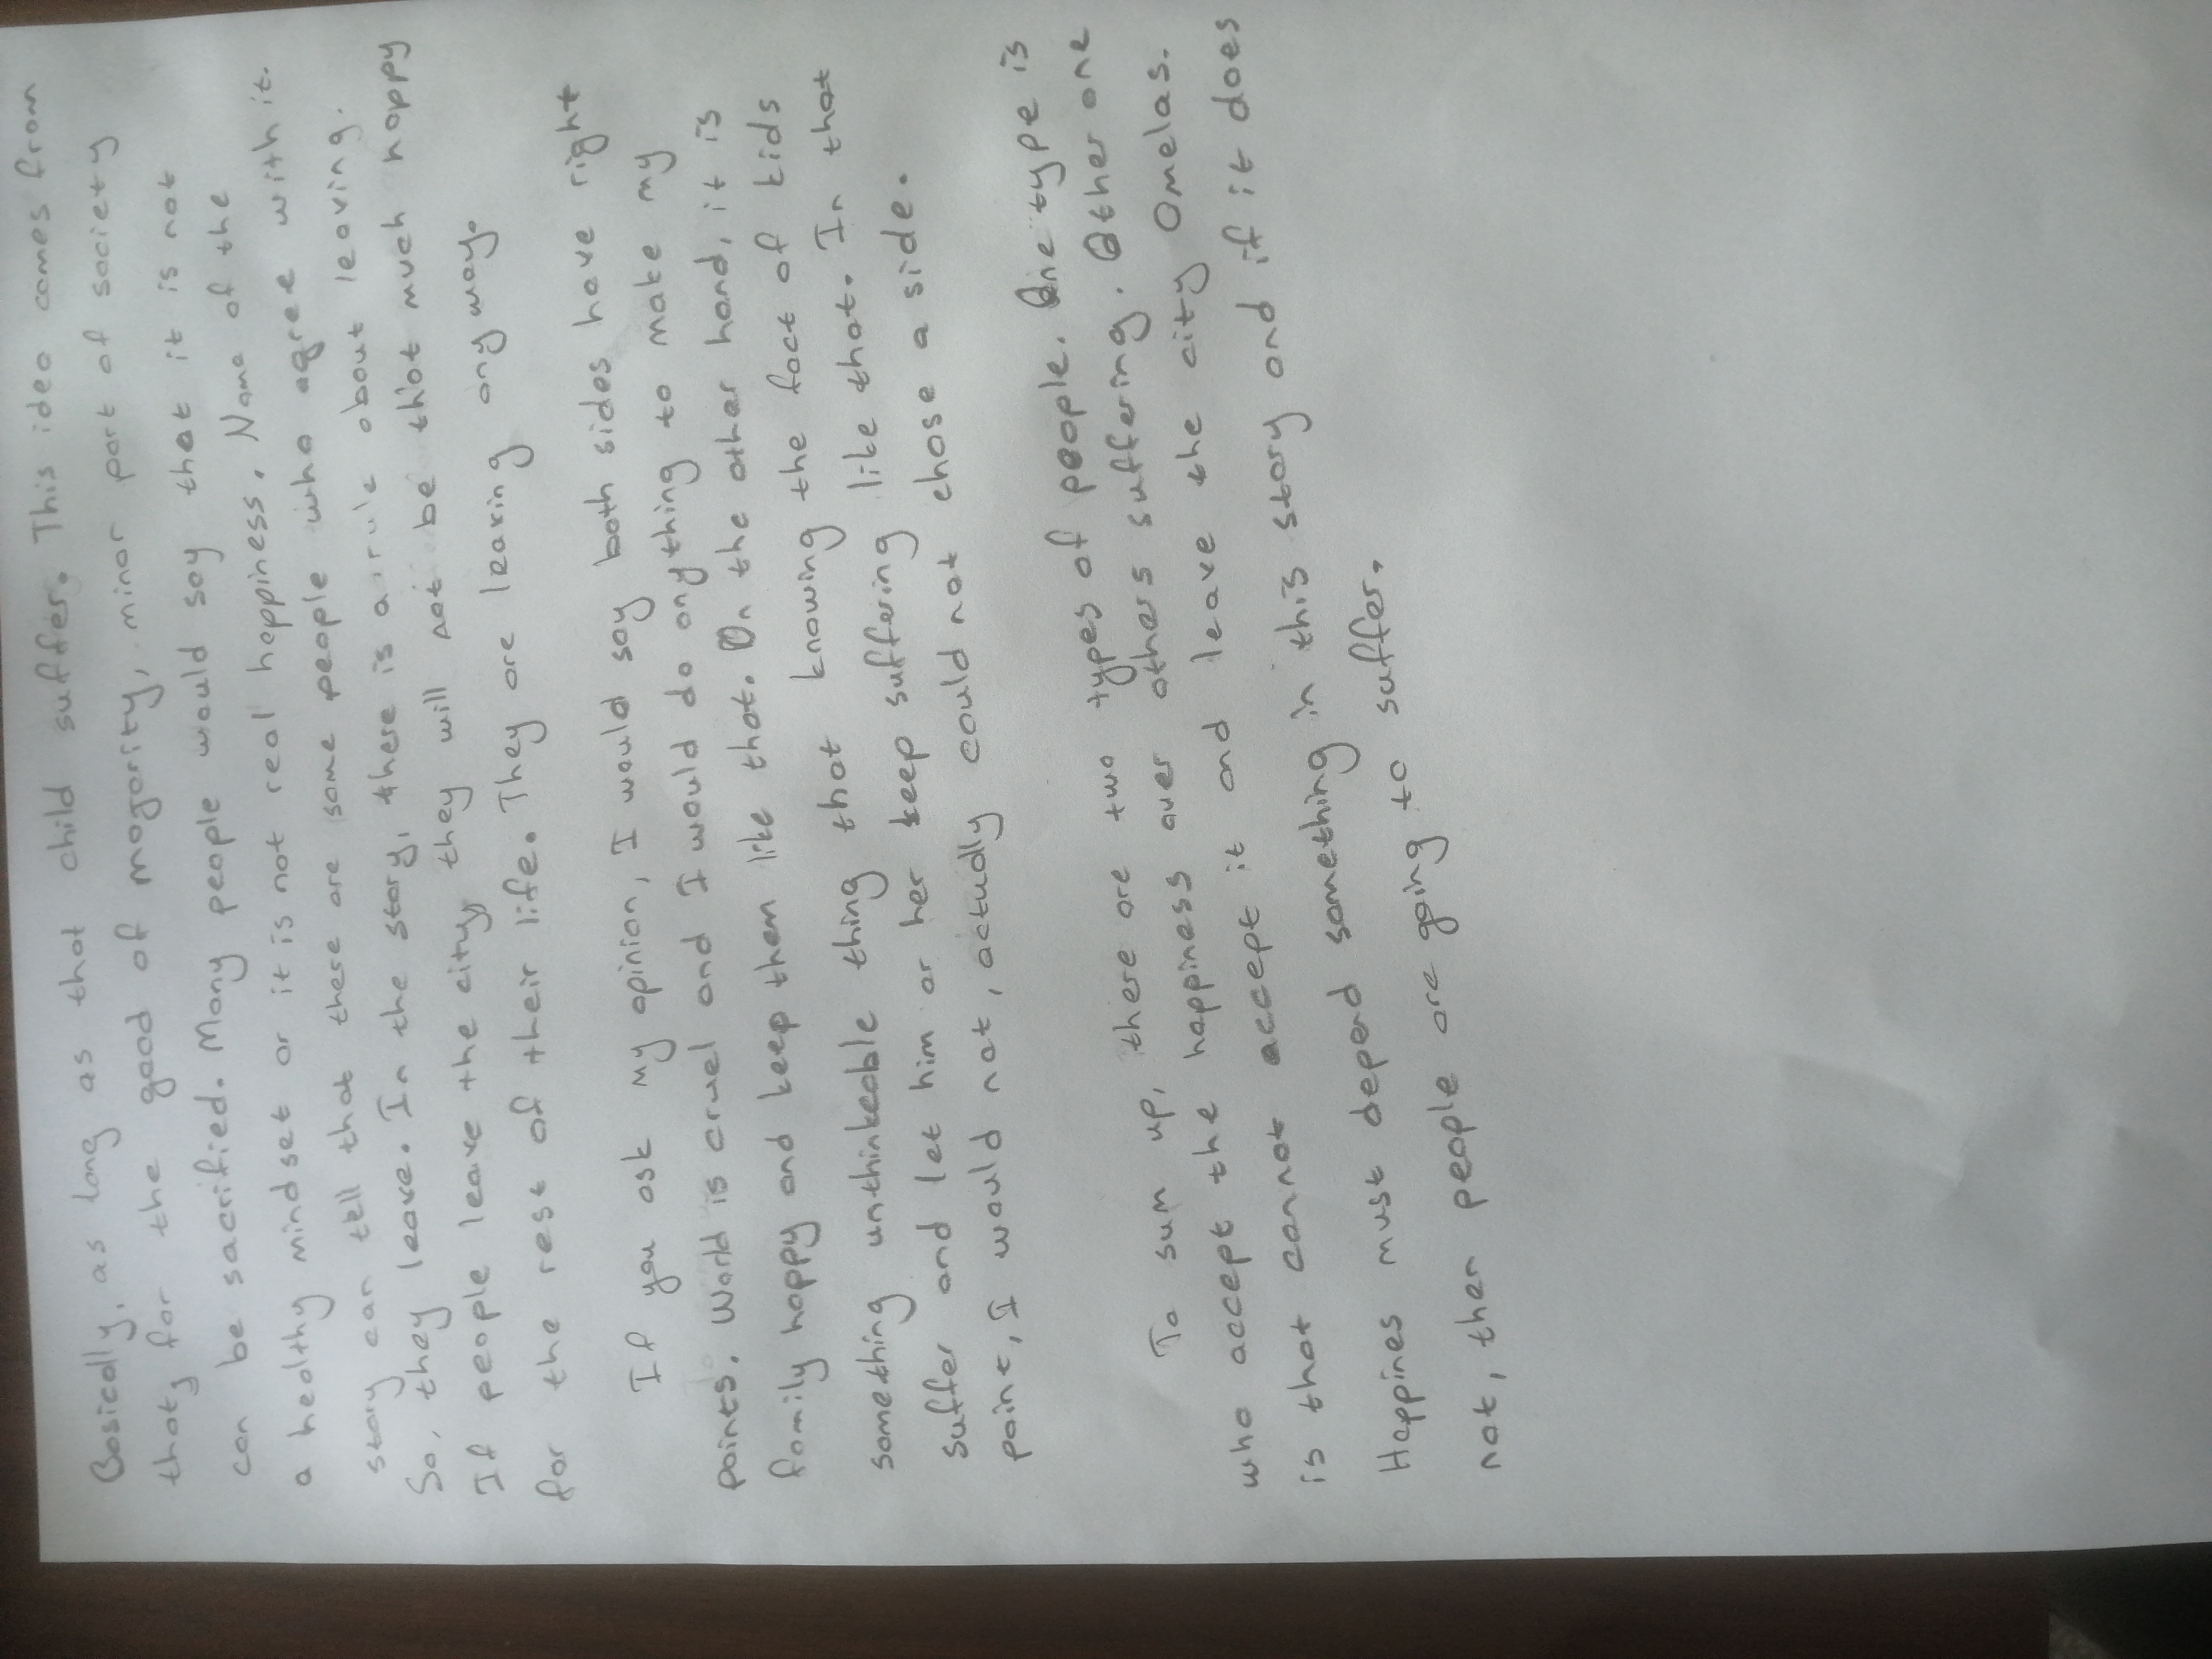 Basically, as long as that child suffer. This idea comes from
that, for the good of majority, minor part of society
can be sacrified. Many people would say that it is not
a healthy mindset or it is not real happiness. Name of the
story can tell that there are some people who agree with it.
So, they leave. In the story, there is a rule about leaving.
If people leave the city, they will not be that much happy
for the rest of their life. They are leaving any way.
If you ask my opinion, I would say both sides have right
points. World is cruel and I would do anything to make my
family happy and keep them like that. On the other hand, it is
something unthinkeable thing that knowing the fact of kids
suffer and let him or her keep suffering like that. In that
point, I would not, actually could not chose a side.
To sum up, there are two types of people. One type is
who accept the happiness over others suffering. Other one
is that cannot accept it and leave the city Omelas.
Happines must depend something in this story and if it does
not, then people are going to suffer.